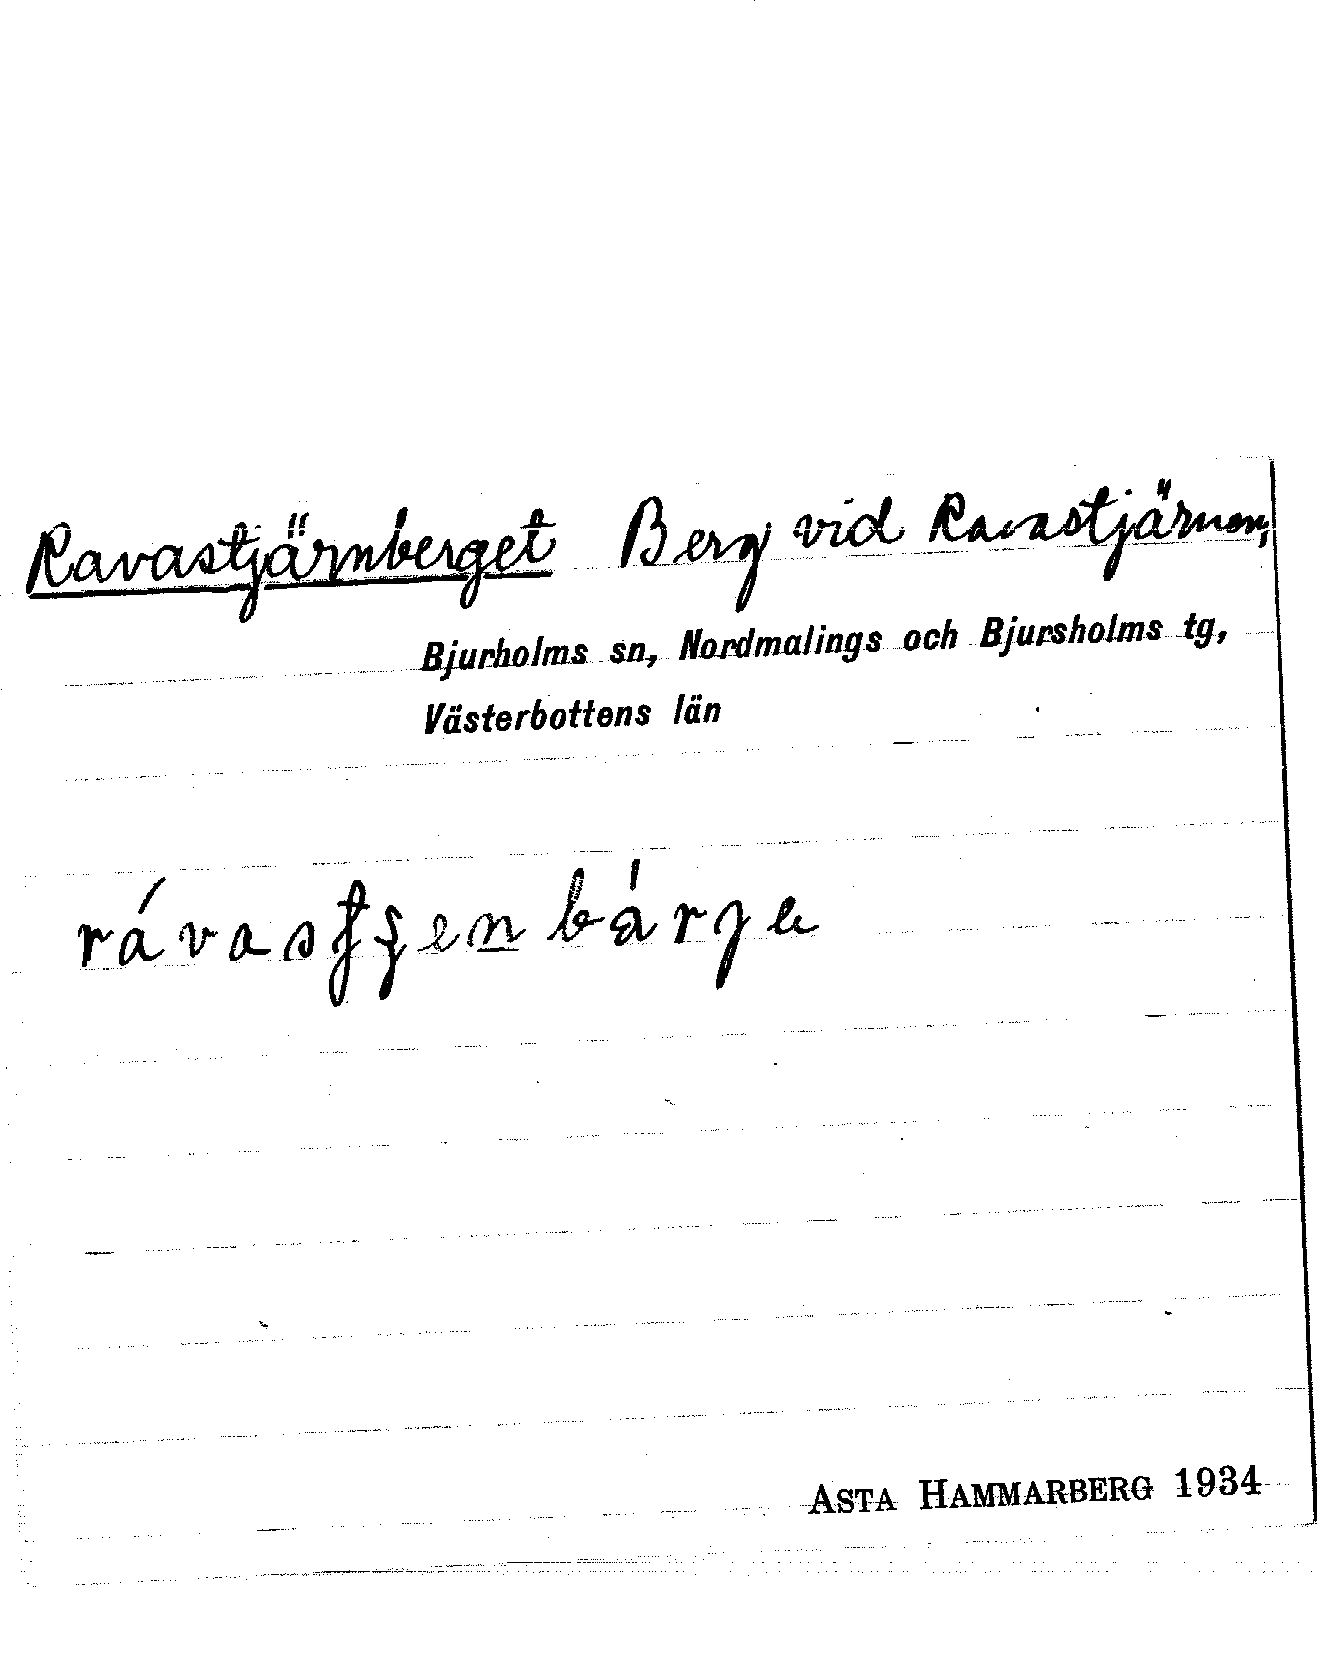 Ravastjärnberget Berg vid Ravastjärnen,
Bjurholms sn, Nordmalings och Bjursholms tg,
Västerbottens län
ASTA HAMMARBERG 1934